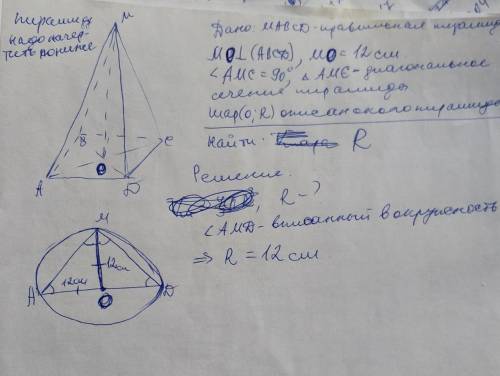 Пирамиду
надо начер-
тить пониже
M
B
C
A
O
D
Дано: MABCD - правильная пирамида
MO⊥(ABCD), MO = 12 см
∠AMC = 90°, △AMC - диагональное
сечение пирамиды
Шар (O; R) описан около пирамиды
Найти: R
Решение.
R - ?
∠AMD - вписанный в окружность
⇒ R = 12 см
M
12см
A
12см
O
D